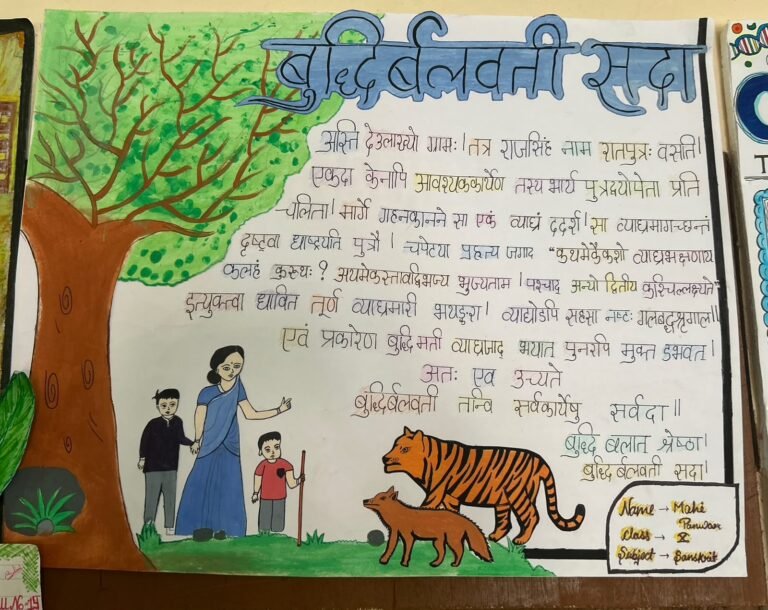 बुद्धिर्बलवती सदा
अस्ति देउलाख्यो ग्रामः। तत्र राजसिंह नाम राजपुत्रः वसति।
एकदा केनापि आवश्यककार्येण तस्य भार्य पुत्रद्वयोपेता प्रति
चलिता। मार्गे गहनकानने सा एकं व्याघ्रं ददर्श। सा व्याघ्रमागच्छन्तं
दृष्ट्वा धाष्टयति पुत्रौ। चपेटया प्रहृत्य जगाद "कथमेकैकशो व्याघ्रभक्षणाय
कलहं कुरुथः? अयमेकस्तावद्विभज्य भुज्यताम। पश्चाद् अन्यो द्वितीय कश्चिल्लक्ष्यते"
इत्युक्त्वा धाविता तूर्ण व्याघ्रमारी भयङ्करा। व्याघ्रोडपि सहसा नष्टः गलबद्धशृगाल॥
एवं प्रकारेण बुद्धिमती व्याघ्रजाद भयात् पुनरपि मुक्त डभवत।
अतः एव उच्यते
बुद्धिर्बलवती तन्वि सर्वकार्येषु सर्वदा॥
बुद्धि बलात श्रेष्ठा।
बुद्धिर्बलवती सदा।
Name → Mahi
Panwar
Class → X
Subject → Sanskrit